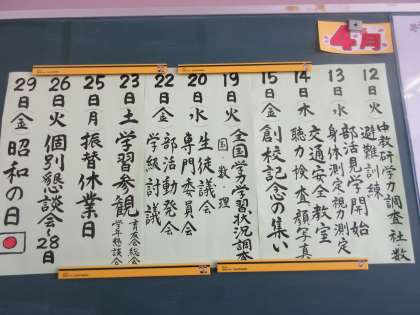 4月
12日(火)
中教研学力調査社数
避難訓練
13日(水)
部活見学開始
身体測定視力測定
交通安全教室
14日(木)
聴力検査 顔写真
15日(金)
創校記念の集い
19日(火)
全国学力学習状況調査
国・数・理
20日(水)
生徒議会
専門委員会
22日(金)
部活動発会
学級討議
23日土
学習参観
育友会総会
学年懇談会
25日月
振替休業日
26日火
個別懇談会~28日
29日金
昭和の日